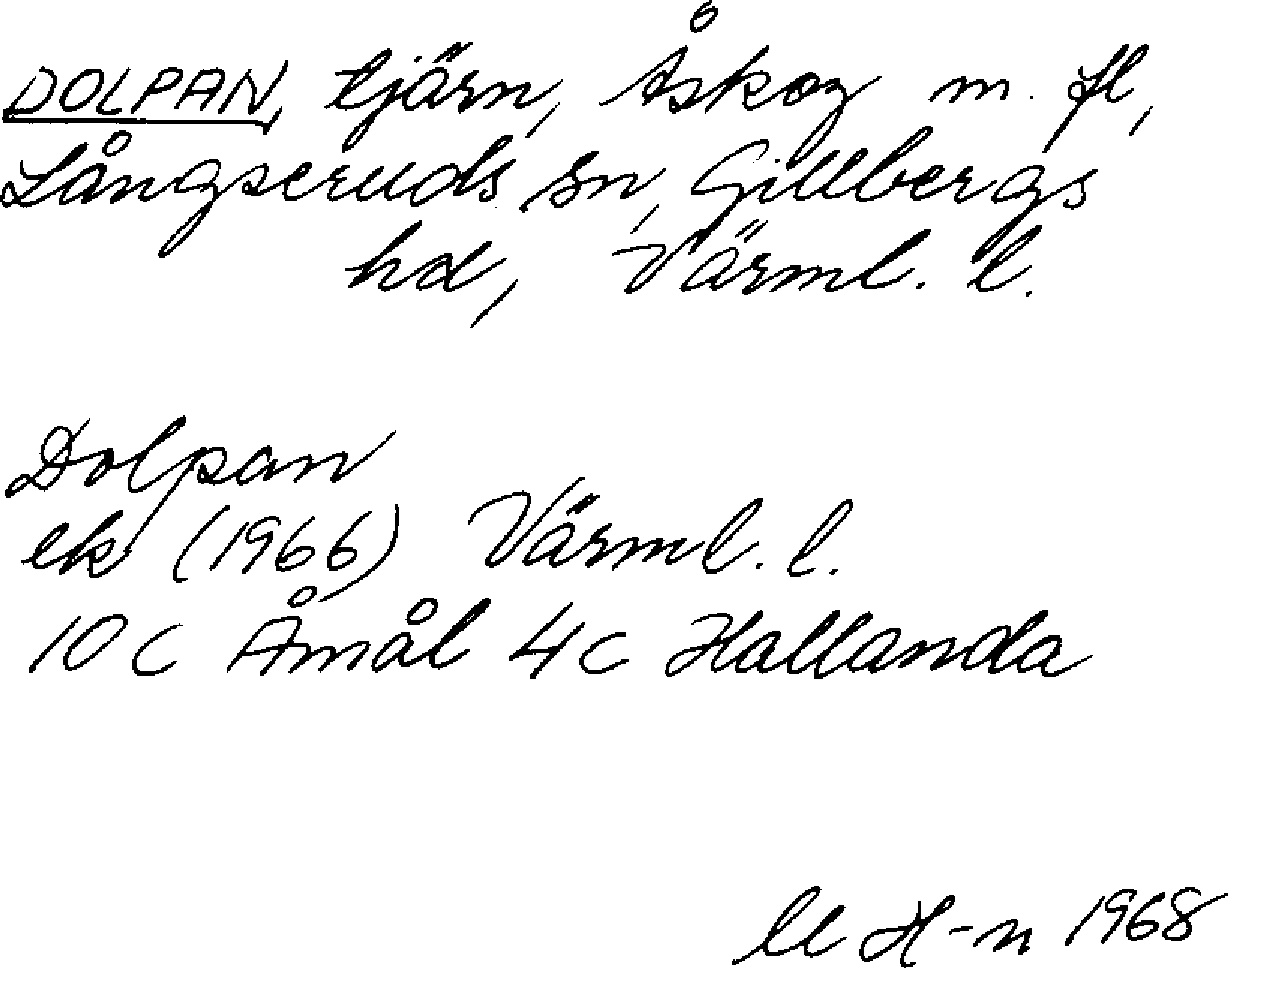 DOLPAN, tjärn, Åskog m. fl,
Långseruds sn, Gillbergs
hd, Värml. l.
Dolpan
ek (1966) Värml. l.
10 c Åmål 4 c Hallanda
H-n 1968